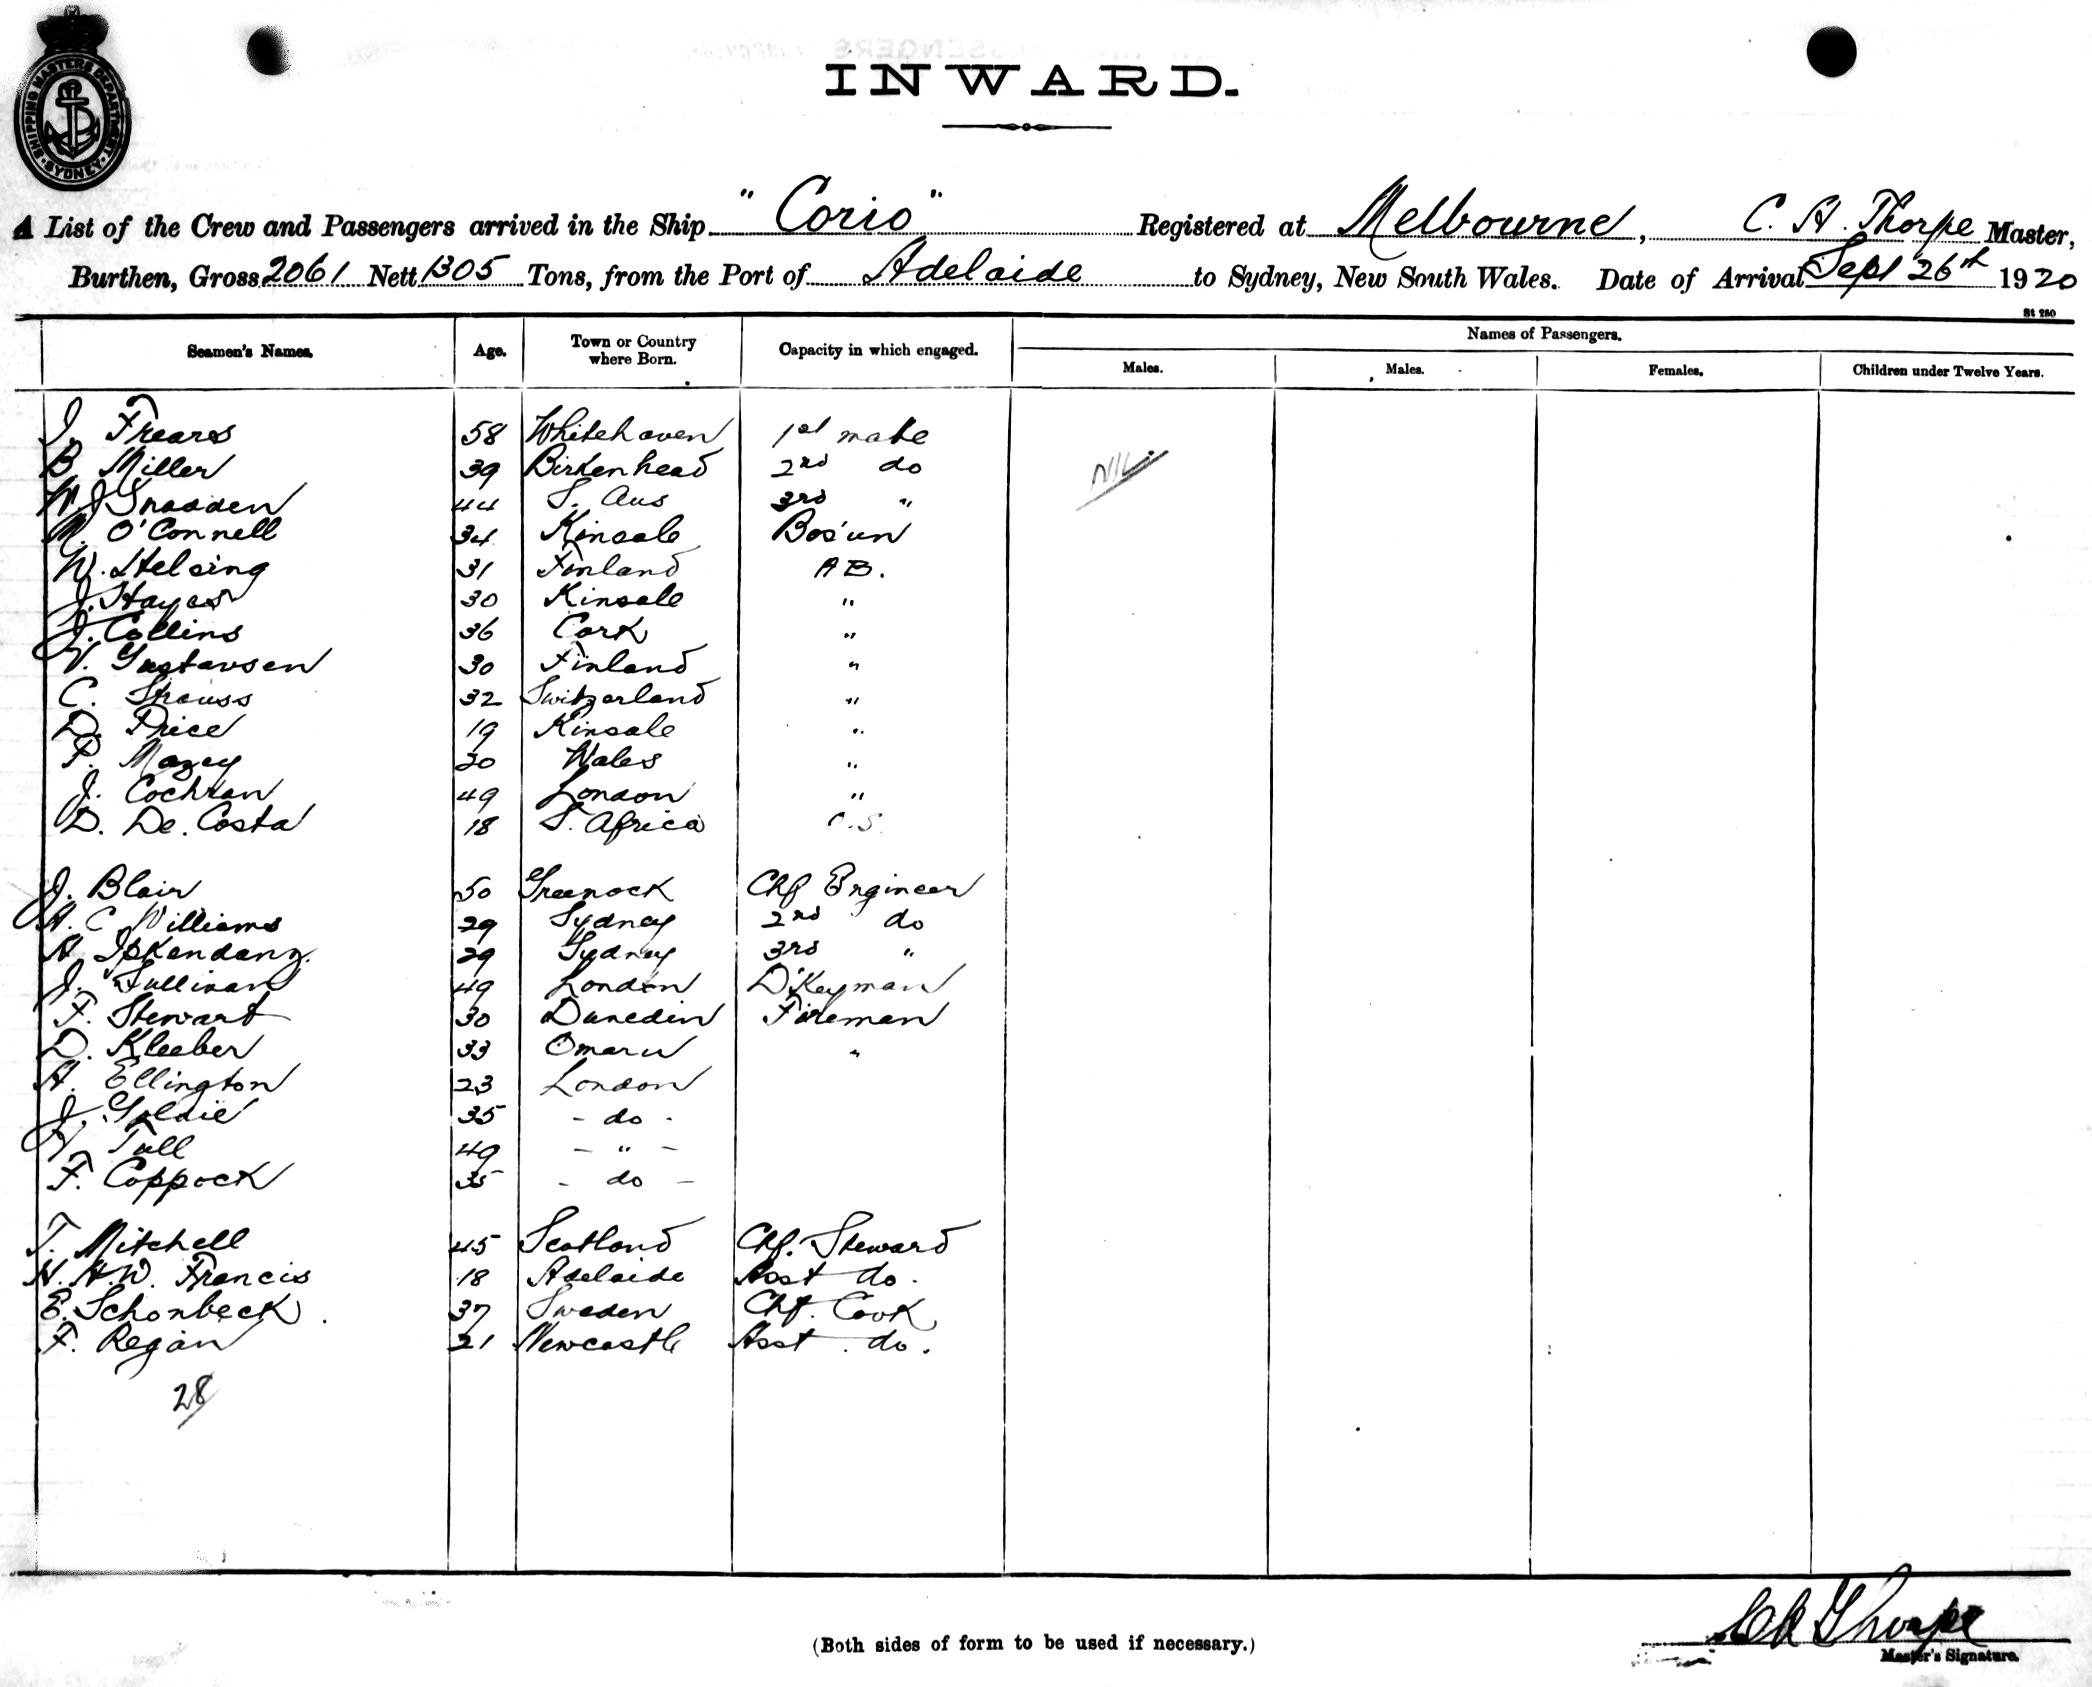 SHIPPING MASTERS DEPARTMENT SYDNEY
INWARD.
A List of the Crew and Passengers arrived in the Ship "Corio" Registered at Melbourne, C. A. Thorpe Master,
Burthen, Gross 2061 Nett 1305 Tons, from the Port of Adelaide to Sydney, New South Wales. Date of Arrival Sept 26th 1920
St 280
Seamen's Names. Age. Town or Country where Born. Capacity in which engaged. Names of Passengers.
Males. Males. Females. Children under Twelve Years.
J. Frears 58 Whitehaven 1st mate
B. Miller 39 Birkenhead 2nd do Nil
W. J. 44 S. Aus 3rd "
M. O'Connell 34 Kinsale Bos'un
W. Helsing 31 Finland A B.
J. Hayes 30 Kinsale "
J. Collins 36 Cork "
V. Gustavsen 30 Finland "
C. Strauss 32 Switzerland "
D. Price 19 Kinsale "
P. Maxey 20 Wales "
J. Cochran 49 London "
D. De. Costa 18 S. Africa O.S.
J. Blair 50 Greenock Chf Engineer
A. C. Williams 29 Sydney 2nd do
A. 29 Sydney 3rd "
J. Sullivan 49 London D'Keyman
F. Stewart 30 Dunedin Fireman
D. Kleeber 33 Omaru "
A. Ellington 23 London
J. Goldie 35 - do -
Tull 49 - " -
F. Coppock 35 - do -
T. Mitchell 45 Scotland Chf. Steward
H. H. W. Francis 18 Adelaide Asst do.
E. Schonbeck. 37 Sweden Chf. Cook
F. Regan 21 Newcastle Asst. do.
28
C A Thorpe
(Both sides of form to be used if necessary.)
Master's Signature.